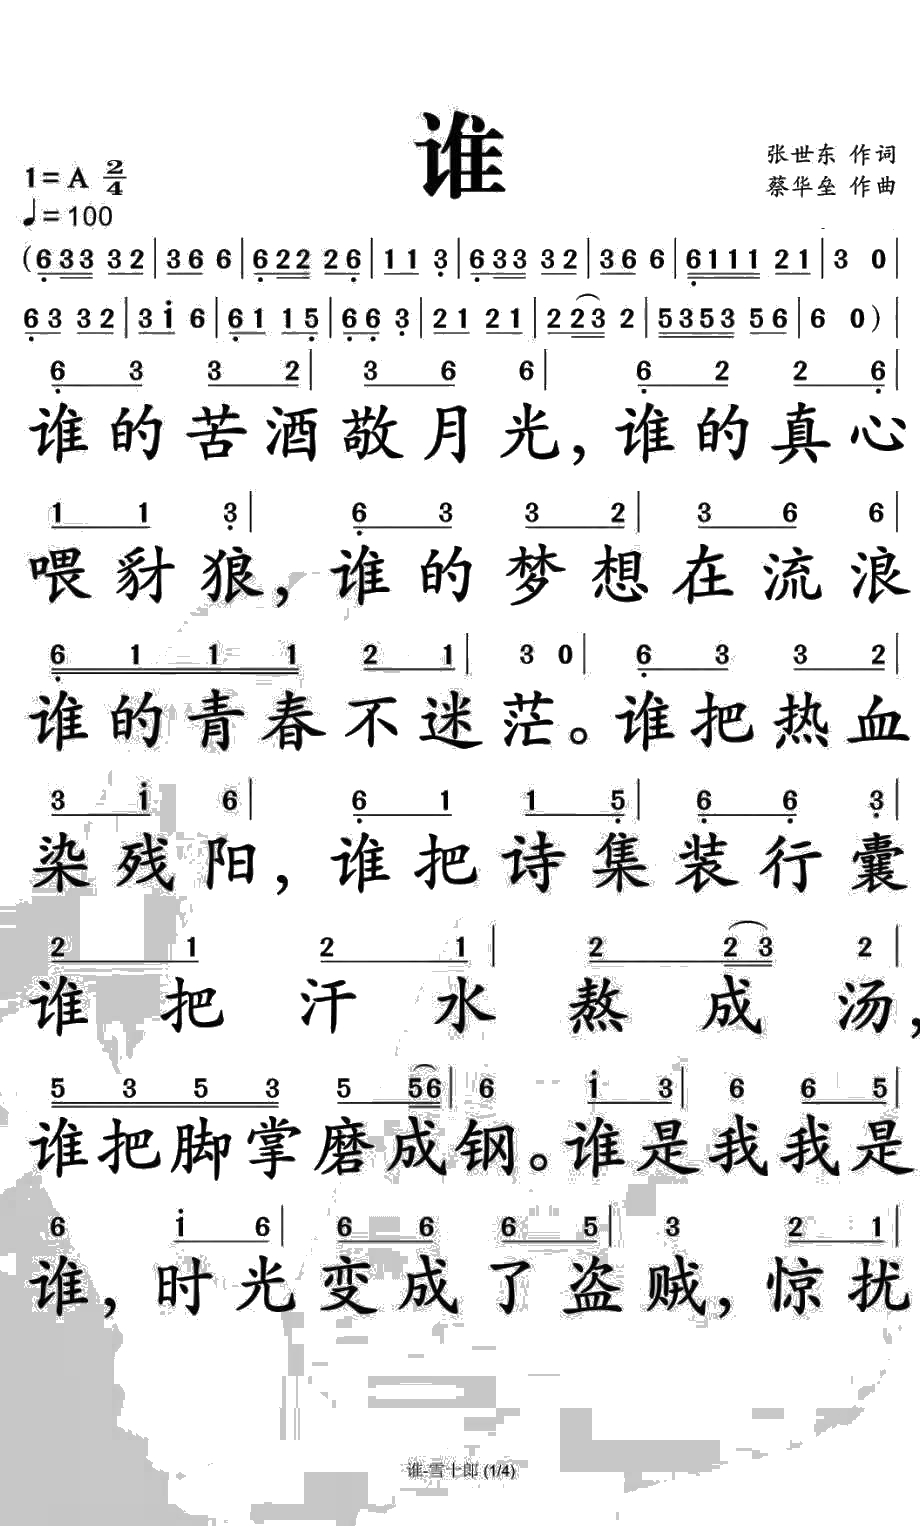 谁
1=A 2/4
张世东 作词
♩=100
蔡华垒 作曲
(6̣33 32|366 6|6̣22 26̣|11 3̣|6̣33 32|366 6|6̣111 21|3 0|
6̣3 32|3i̇ 6|6̣1 15̣|6̣6̣ 3̣|21 21|223 2|5353 56|6 0)|
6̣ 3 3 2|3 6 6|6̣ 2 2 6̣|
谁的苦酒敬月光,谁的真心
1 1 3̣|6̣ 3 3 2|3 6 6|
喂豺狼,谁的梦想在流浪
6̣ 1 1 1 2 1|3 0|6̣ 3 3 2|
谁的青春不迷茫。谁把热血
3 i̇ 6|6̣ 1 1 5̣|6̣ 6̣ 3̣|
染残阳,谁把诗集装行囊
2 1 2 1|2 2 3 2|
谁把汗水熬成汤,
5 3 5 3 5 56|6 i̇ 3|6 6 5|
谁把脚掌磨成钢。谁是我我是
6 i̇ 6|6 6 6 5|3 2 1|
谁,时光变成了盗贼,惊扰
谁-雪十郎 (1/4)